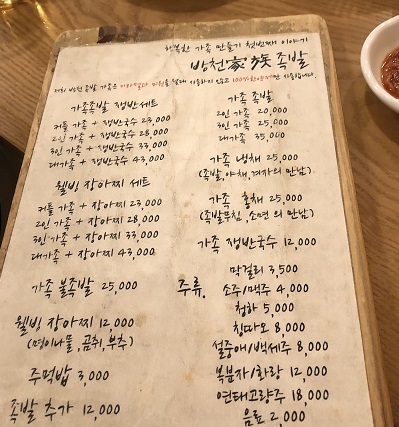 행복한 가족 만들기 첫번째 이야기
방천家族족발
가족족발 쟁반세트
커플 가족 + 쟁반국수 23,000
2인 가족 + 쟁반국수 28,000
3인 가족 + 쟁반국수 33,000
대가족 + 쟁반국수 43,000
웰빙 장아찌 세트
커플 가족 + 장아찌 23,000
2인 가족 + 장아찌 28,000
3인 가족 + 장아찌 33,000
대가족 + 장아찌 43,000
가족 불족발 25,000
웰빙 장아찌 12,000
(명이나물, 곰취, 부추)
주먹밥 3,000
족발 추가 12,000
가족 족발
2인 가족 20,000
3인 가족 25,000
대가족 35,000
가족 냉채 25,000
(족발, 야채, 겨자의 만남)
가족 홍채 25,000
(족발무침, 소면 의 만남)
가족 쟁반국수 12,000
주류.
막걸리 3,500
소주/맥주 4,000
청하 5,000
칭따오 8,000
설중매/백세주 8,000
복분자/화랑 12,000
연태고량주 18,000
음료 2,000